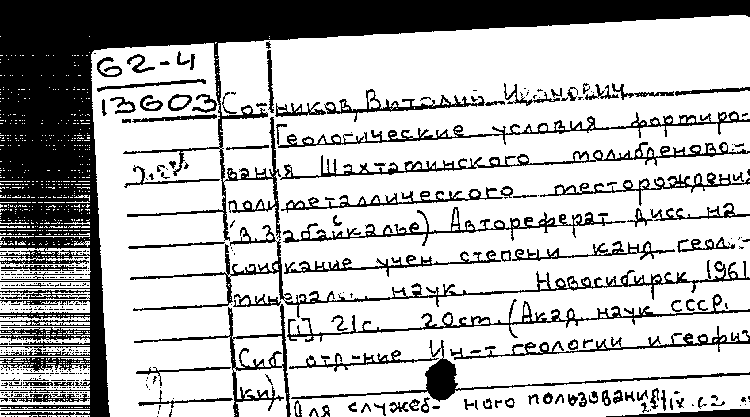 62-4
13603
Сотников, Виталий Иванович
Геологические условия формиро-
вания Шахтаминского молибденово-
полиметаллического месторождения
(В. Забайкалье). Автореферат дисс. на
соискание учен. степени канд. геол.-
минерал. наук. Новосибирск, 1961
[1], 21 с. 20 см. (Акад. наук СССР.
Сиб. отд-ние. Ин-т геологии и геофизи
ки).
Для служебного пользования.